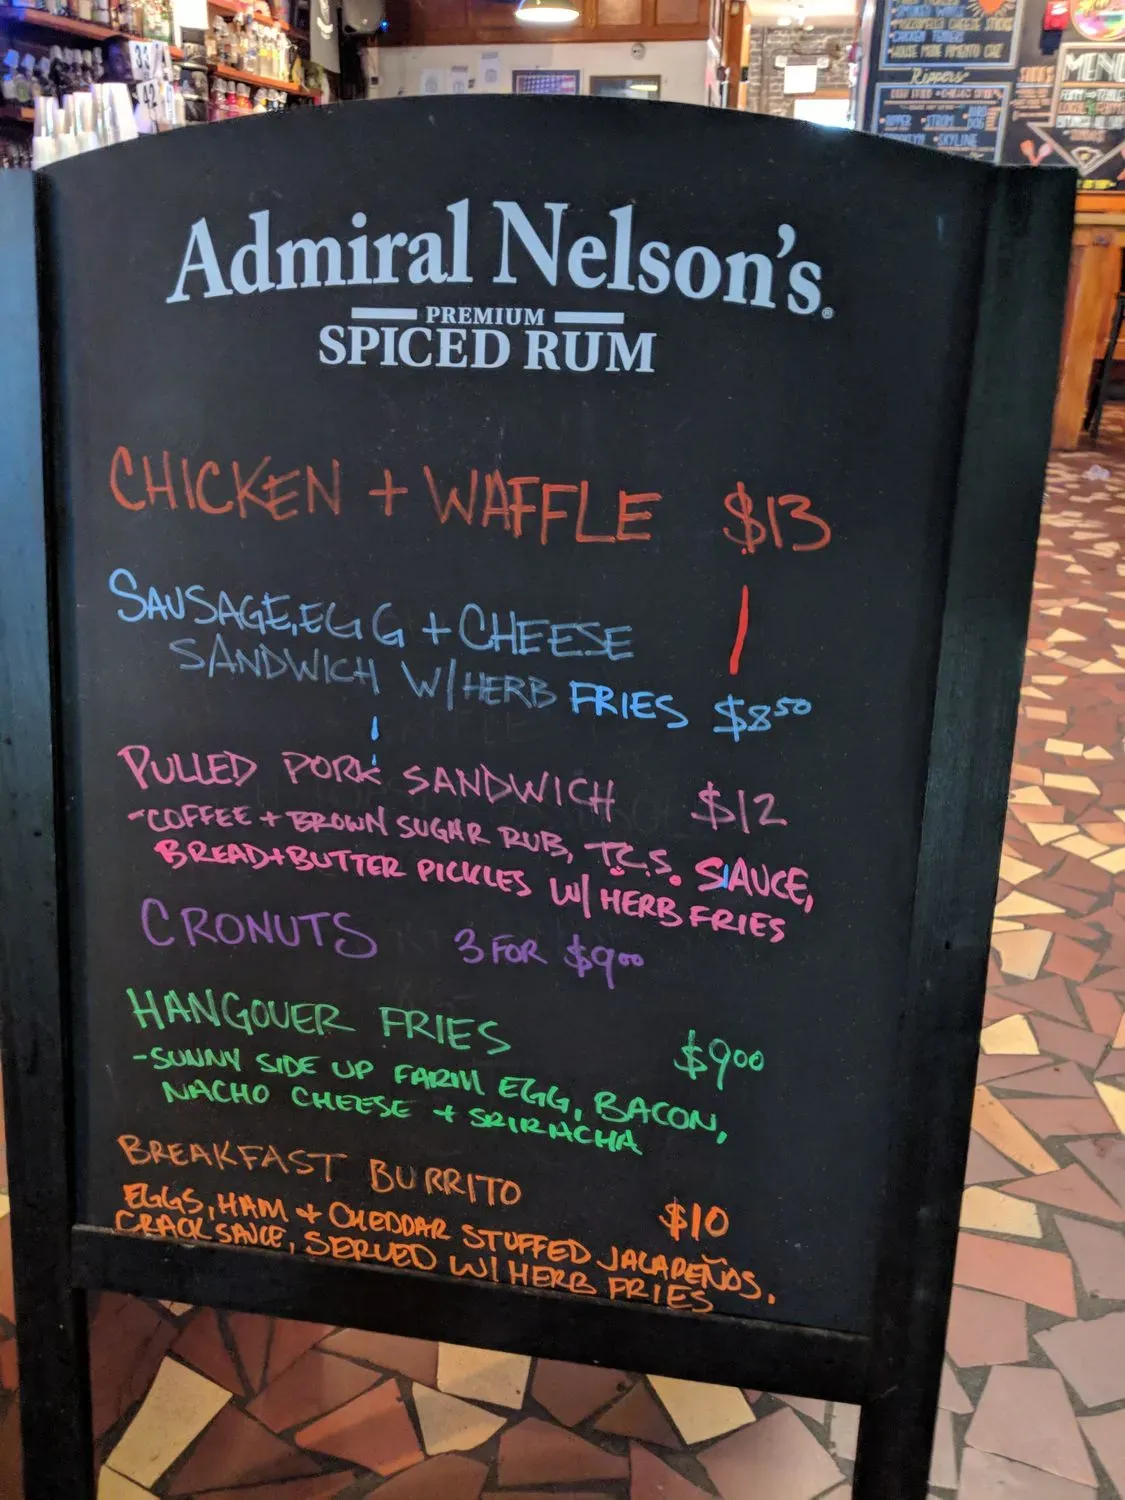 Admiral Nelson's®
PREMIUM
SPICED RUM
CHICKEN + WAFFLE $13
SAUSAGE, EGG + CHEESE
SANDWICH W/ HERB FRIES $8.50
PULLED PORK SANDWICH $12
-COFFEE + BROWN SUGAR RUB, T.C.S. SAUCE,
BREAD+BUTTER PICKLES W/ HERB FRIES
CRONUTS 3 FOR $9.00
HANGOVER FRIES $9.00
-SUNNY SIDE UP FARM EGG, BACON,
NACHO CHEESE + SRIRACHA
BREAKFAST BURRITO $10
EGGS, HAM + CHEDDAR STUFFED JALAPEÑOS,
CRACK SAUCE, SERVED W/ HERB FRIES
33
42
MOZZARELLA CHEESE STICKS
CHICKEN TENDERS
HOUSE MADE PIMENTO CHZ
Rippers
RIPPER
SKYLINE
MENU